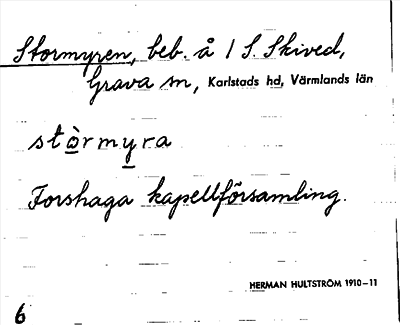 Stormyren, beb. å 1 S. Skived,
Grava sn, Karlstads hd, Värmlands län
stòrmyra
Forshaga kapellförsamling.
HERMAN HULTSTRÖM 1910-11
6